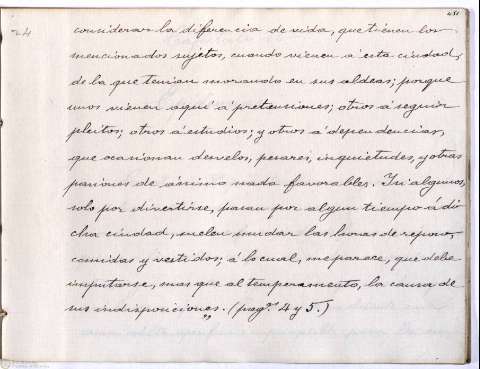 24
considerar la diferencia de vida, que tienen los
mencionados sujetos, cuando vienen a esta ciudad,
de la que tenian morando en sus aldeas; porque
unos vienen aqui á pretensiones; otros á seguir
pleitos; otros á estudios; y otros á dependencias,
que ocasionan desvelos, pesares, inquietudes, y otras
pasiones de ánimo nada favorables. Si algunos,
solo por divertirse, pasan por algun tiempo á di
cha ciudad, suelen mudar las horas de reposo,
comidas y vestidos; á lo cual, me parece, que debe
imputarse, mas que al temperamento, la causa de
sus indisposiciones." (pags. 4 y 5.)